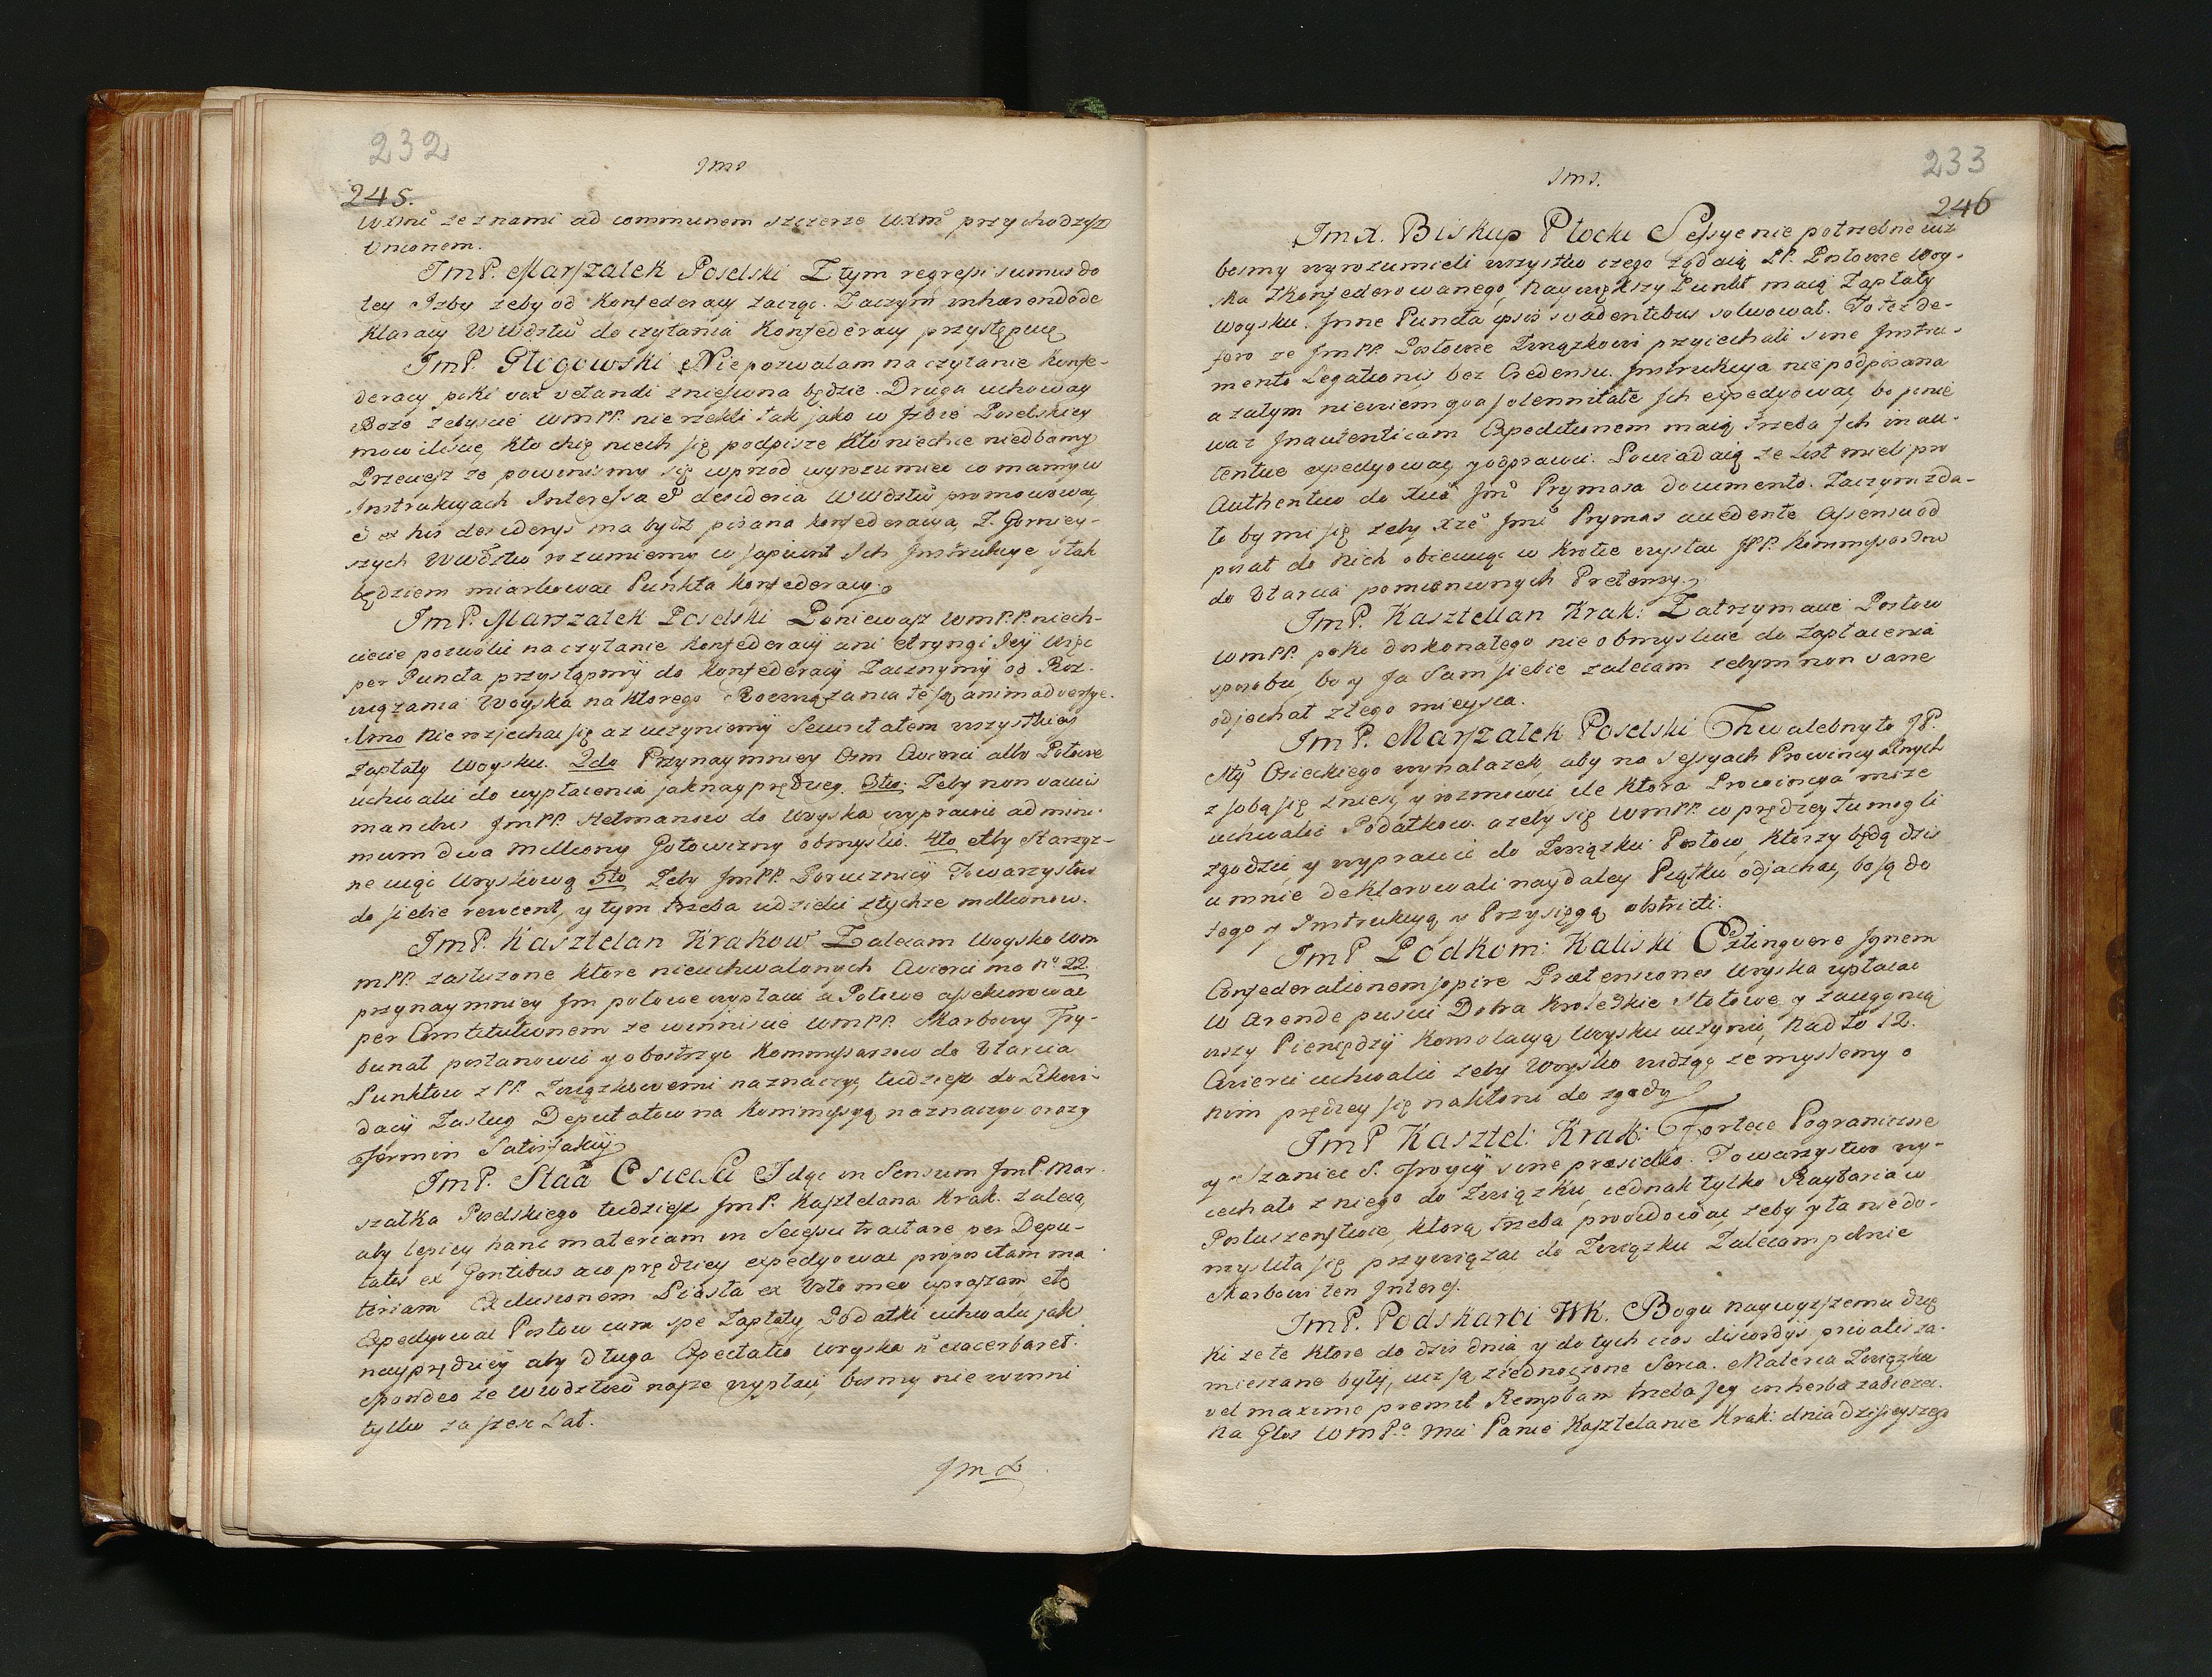 232
Jms
245.
WXmć zeznami ad communem szczerze WXmć przychodzisz
Unionem.
JmP. Marszałek Poselski Z tym regressi sumus do
tey Jzby żeby od Konfederacy zacząc. Zaczym inhaerendo de
klaracy WWdztw do czytania Konfederacy przystępuię
JmP. Głogowski Niepozwalam na czytanie Konfe-
deracy poki vox vetandi zniesiona będzie. Druga uchoway
Boże żebyscie WmPP. nie rzekli tak jako w Jzbie Poselskiey
mowiliscie, kto chcę niech się podpisze kto niechce niedbamy
Przeciesz że powinismy się wprzod wyrozumiec co mamy w
Jnstrukcyach Jnteressa et desideria WWdztw promowowac,
e ex his desideriis ma bydz pisana Konfederacya, Z. Gorniey-
szych WWdztw rozumiemy co sapiunt Jch Jnstrukcye y tak
będziem miarkowac Punkta Konfederacy.
JmP. Marszałek Poselski Poniewasz WmPP. niech-
cicie pozwolic na czytanie Konfederacij ani stryngi Jey Więc
per Puncta przystąpmij do Konfederacij Zacznymij od Roz-
wiązania Woyska na ktorego Rozwiązania te są animadversye.
1mo Nie rozjechac się az uczyniemij Securitatem wszystkiey
Zapłaty Woysku. 2do Przynaymniey Osm Cwierci albo Połowe
uchwalic do wypłacenia jaknayprędzey. 3tio: Zeby non vacuis
manibus JmPP. Hetmanow do Woyska wyprawic ad mini-
mum dwa Milliony Gotowizny obmyslic. 4to Aby Starszy-
ne ująć Woyskową 5to Zeby JmPP. Porucznicy Towarzystwo
do siebie revocent, y tym trzeba udzielic ztychże millionow.
JmP. Kasztelan Krakow. Zalecam Woysko Wm
mPP. zasłużone ktore nieuchwalonych Cwierci ma No 22.
przynaymniey Jm połowe wypłacić a Połowe assekurowac
per Constitutionem ze winniscie WmPP. Skarbowy Try-
bunał postanowic y obostrzyc Kommissarzow do Utarcia
Punktow z PP. Związkowemi naznaczyc, tudziesz do Likwi-
dacij Zasług Deputatow na Kommissyą naznaczyc oraz y
Termin Satisfakcij
JmP. Stta Osiecki Jdąc in Sensum JmP. Mar-
szałka Poselskiego tudziesz JmP. Kasztelana Krak. zalecą,
aby lepiey hanc materiam in Secessu tractare per Depu-
tatos ex Gentibus aco prędziey expedyowac propositam ma
teriam Exclusionem Piasta ex Voto meo upraszam, et
Expedyowac Posłow cum spe Zapłaty Podatki uchwalic jak
nayprędziej aby długa Expectatio Woyska n̄ exacerbaret.
spondeo ze Wwdztwo nasze wypłaci, bosmy nie winni
tylko za szesc Lat.
JmX
233
Jms.
246
JmX. Biskup Płocki Sessye nie potrzebne iuż
bosmy wyrozumieli wszystko czego żądaią PP. Posłowie Woy-
ska Zkonfederowanego, naywiększy Punkt maią Zapłaty
Woysku. Jnne Puncta ipsis svadentibus solwował. To też de-
fero ze JmPP. Posłowie Związkowi przyiechali sine Jnstru-
mento Legationis bez Credensu. Jnstrukcya niepodpisana
a zatym niewiem qua solennitate Jch expedyowac, bo ponie
waż Jnautenticam Expeditionem maią trzeba Jch in au-
tentice expedyowac, y odprawic. Powiadaią ze List mieli pro
Authentico do Xcia Jmć Prymasa documento. Zaczym zda-
ło by mi się zeby Xże Jmć Prymas accedente Assensu od
pisał do Nich obiecuiąc w krotce wysłac JPP. Kommissarzow
do Utarcia pomienionych Pretensy.
JmP. Kasztellan Krak: Zatrzymacie Posłow
WmPP. poki doskonałego nie obmyslicie do zapłacenia
sposobu, bo y Ja Sam siebie zalecam zebym non vane
odjechał z tego mieysca.
JmP. Marszałek Poselski Chwalebny to JP.
Stty Osieckiego wynalazek, aby na Sessyach Prowincyalnych
z sobą się zniesc, y rozmowic ile ktora Prowincya może
uchwalic Podatkow. azeby się WmPP. w prędzey tu mogli
zgodzic y wyprawic do Związku Posłow, ktorzy będą dzis
u mnie deklarowali naydaley Piątku odjachac, bo są do
tego y Jnstrukcyą y Przysięgą obstricti.
JmP Podkom: Kaliski Extinguere Jgnem
Confederationem sopire Praetensiones Woyska wypłacac
w Arende puscic Dobra Krolewskie Stołowe, y zaciągnią
wszy Pieniędzij Konsolacyą Woysku uczynić, Nad to 12.
Cwierci uchwalic zeby Woysko widząc ze myslemy o
nim prędzey się nakłoni do zgody
JmP Kasztel: Krak: Fortece Pograniczne
y Szaniec S. Troycij sine praesidio. Towarzystwo wy-
iechało z niego do Związku, iednak tylko Raytaria w
Posłuszeństwie, ktorą trzeba prowidowac, zeby y ta niedo-
mysliła się przywiązac do Związku Zalecam pilnie
Skarbowi ten Jnteres.
JmP. Podskarbi WK. Bogu naywyższemu dzię
ki ze te ktore do dzis dnia, y do tych czas discordijs privatis za-
mieszane były, iuż są ziednoczone Serca. Materia Związku
vel maxime premit Rempblam trzeba Jey in herba zabiezec.
Na Głos WmPa Mci Panie Kasztelanie Krak: dnia dzisieyszego